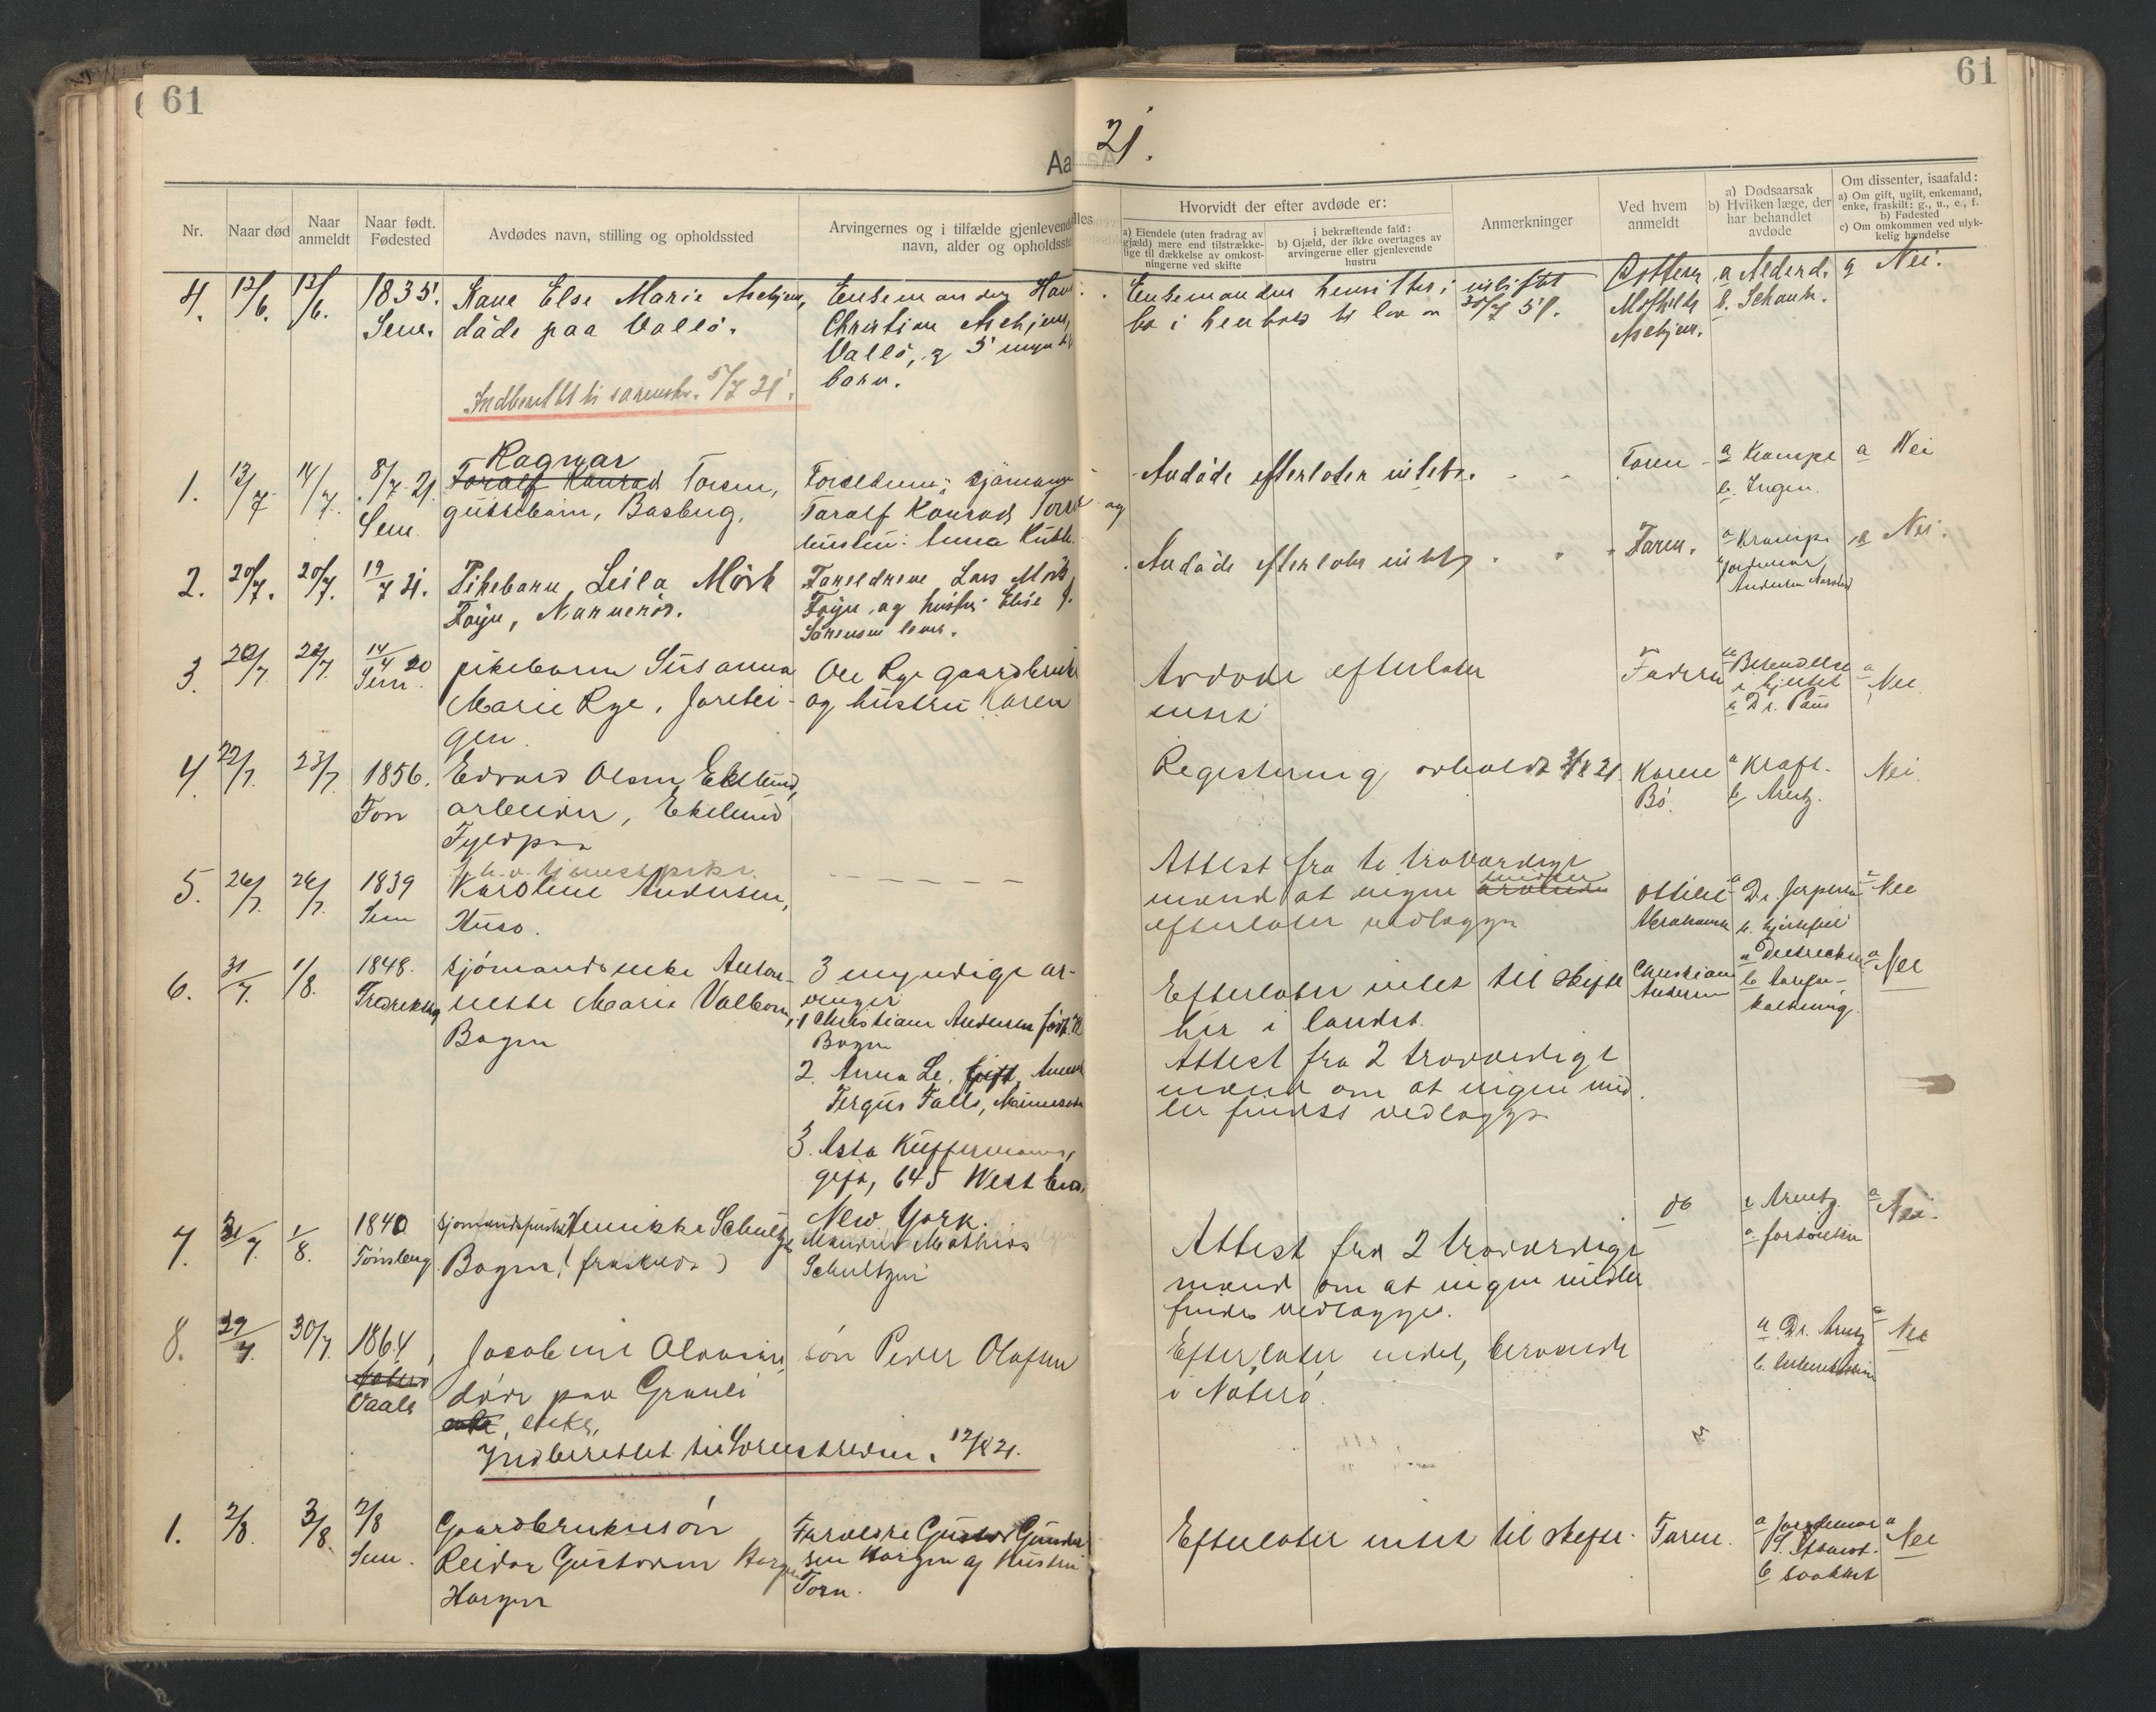 61
61
Aa 21.
Nr.
Naar død
Naar anmeldt
Naar født. Fødested
Avdødes navn, stilling og opholdssted
Arvingernes og i tilfælde gjenlevend
navn, alder og opholdsste
Hvorvidt der efter avdøde er:
a) Eiendele (uten fradrag av
gjæld) mere end tilstrække-
lige til dækkelse av omkost-
ningerne ved skifte
i bekræftende fald:
b) Gjæld, der ikke overtages av
arvingerne eller gjenlevende
hustru
Anmerkninger
Ved hvem
anmeldt
a) Dødsaarsak
b) Hvilken læge, der
har behandlet
avdøde
Om dissenter, isaafald:
a) Om gift, ugift, enkemand,
enke, fraskilt: g., u., e., f.
b) Fødested
c) Om omkommen ved ulyk-
kelig hændelse
4. 12/6. 13/6. 1835.
Sem.
Kone Else Marie Aschjem,
døde paa Vallö.
Enkemanden Hans
Christian Aschjem,
Vallö, og 5 myndige
barn.
Enkemanden hensitter i
bo i henhold til lov
30/7 51.
Mathilde
Aschjem.
a Alderd.
b. Schank.
a Nei.
Indberettet til sorenskr. 5/7 21.
1. 13/7 14/7. 8/7 21.
Sem
Ragnar
Toralf Konrad Torsen,
guttebarn, Basberg.
Forældrene: sjömand
Toralf Konrad Torsen og
hustru: Anna
Avdöde efterlater intet.
Faren
a Krampe
b. Ingen.
a Nei
2. 20/7. 20/7. 19/7 21.
Pikebarn Leila Mörk
Föyn, Narverød.
Foreldrene, Lars Mörk
Föyn, og hustru Elise J.
Sörensen lever.
Avdöde efterlater intet
Faren.
a Krampe
b Jordmor
Andersen
a Nei.
3. 20/7. 22/7. 14/4 20
Sem.
pikebarn Susanna
Marie Rye, Jarebei-
gen.
Ole Rye gaardbruker
og hustru Karen
Avdöde efterlater
intet
Faderen
a Betendelse
i hjertet
b Dr. Paus
a Nei
4. 22/7. 23/7. 1856.
Edvard Olsen Eklund,
arbeider, Eklund
Fyldpaa
Registrering avholdt 3/8 21.
Karen
Bö.
a Kræft.
b Arentz.
Nei.
5. 26/7. 26/7. 1839
Sem
fh.v. tjenestpike
Karoline Andersen,
Huso.
Attest fra to troværdige
mænd at ingen midler
efterlater vedlægges
Ottilie
Abrahamsen
a Dr Jespersen
b. hjertefeil
a Nei
6. 31/7. 1/8. 1848.
sjömandsenke Anton-
nette Marie Valborn,
Bogen
3 myndige ar-
vinger
1 Christian Andersen
Bogen
2. Anna Le, Gift,
Fergus Falls, Minnesota
3. Asta Küffermann,
gift, 645 West End
New York.
Efterlater intet til skifte
her i landet.
Attest fra 2 troværdige
mænd om at ingen mid
ler findes vedlægges
Christian
Andersen
kalkning.
a Nei
7. 31/7. 1/8. 1840
Tönsberg.
sjömandshustru Henrikke Schultzen
Bogen, (fraskilt)
Mathias
Schultzen
Attest fra 2 troværdige
mænd om at ingen midler
findes vedlægges.
do
Arentz.
a Nei.
8. 29/7. 30/7. 1864,
Nøterø
Vaale
Jacobine Olavsen,
döde paa Grauli
enke, enke,
sön Peder Olafsen
Efterlater intet, boende
i Nøterö.
a Dr. Arentz
a Nei
Indberettet til Sorenskriveren. 12/8 21.
1. 2/8. 3/8. 2/8
Sem.
Gaardbrukersön
Reidar Gustavsen Horgen
Horgen
Foreldre Gustav Gunder
sen Horgen og Hustru
Efterlater intet til skifte.
Faren.
a Jordemor
b svakket
a Nei